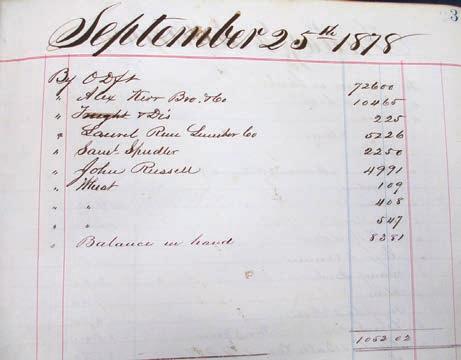 3
September 25th 1878
By O Dft 72600
" Alex Kerr Bro. & Co 10465
" Freight & Dis 225
" Laurel Run Lumber Co 5226
" Saml Spudler 2250
" John Russell 4991
" Wheat 109
" " 408
" " 547
" Balance in hand 8381
1052 02